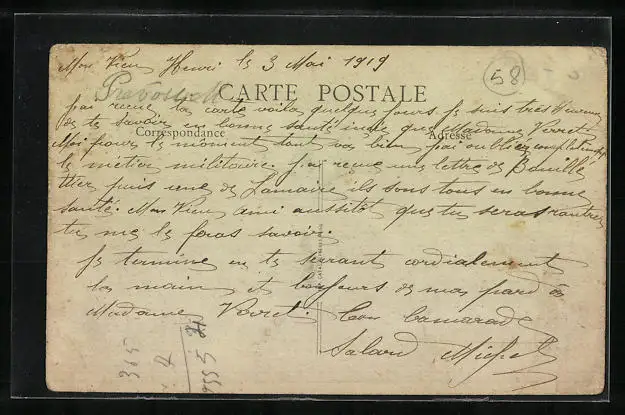 Mon Vieu Henri le 3 Mai 1919
58
CARTE POSTALE
j'ai recue ta carte voila quelques jours Je suis tres heureux
Correspondance
Adresse
de te savoir en bonne santé ainsi que Madame Voiret
Moi pour le moment tout va bien j'ai oublier
le métier militaire. j'ai recue une lettre de
puis une de Lamaire ils sont tous en bonne
santé. Mon Vieu ami aussitôt que tu seras rentrer
tu me le feras savoir.
Je termine en te serrant cordialement
la main et bonjours de ma pard à
Madame Voiret. Ton Camarade
Salard Michel
315
2